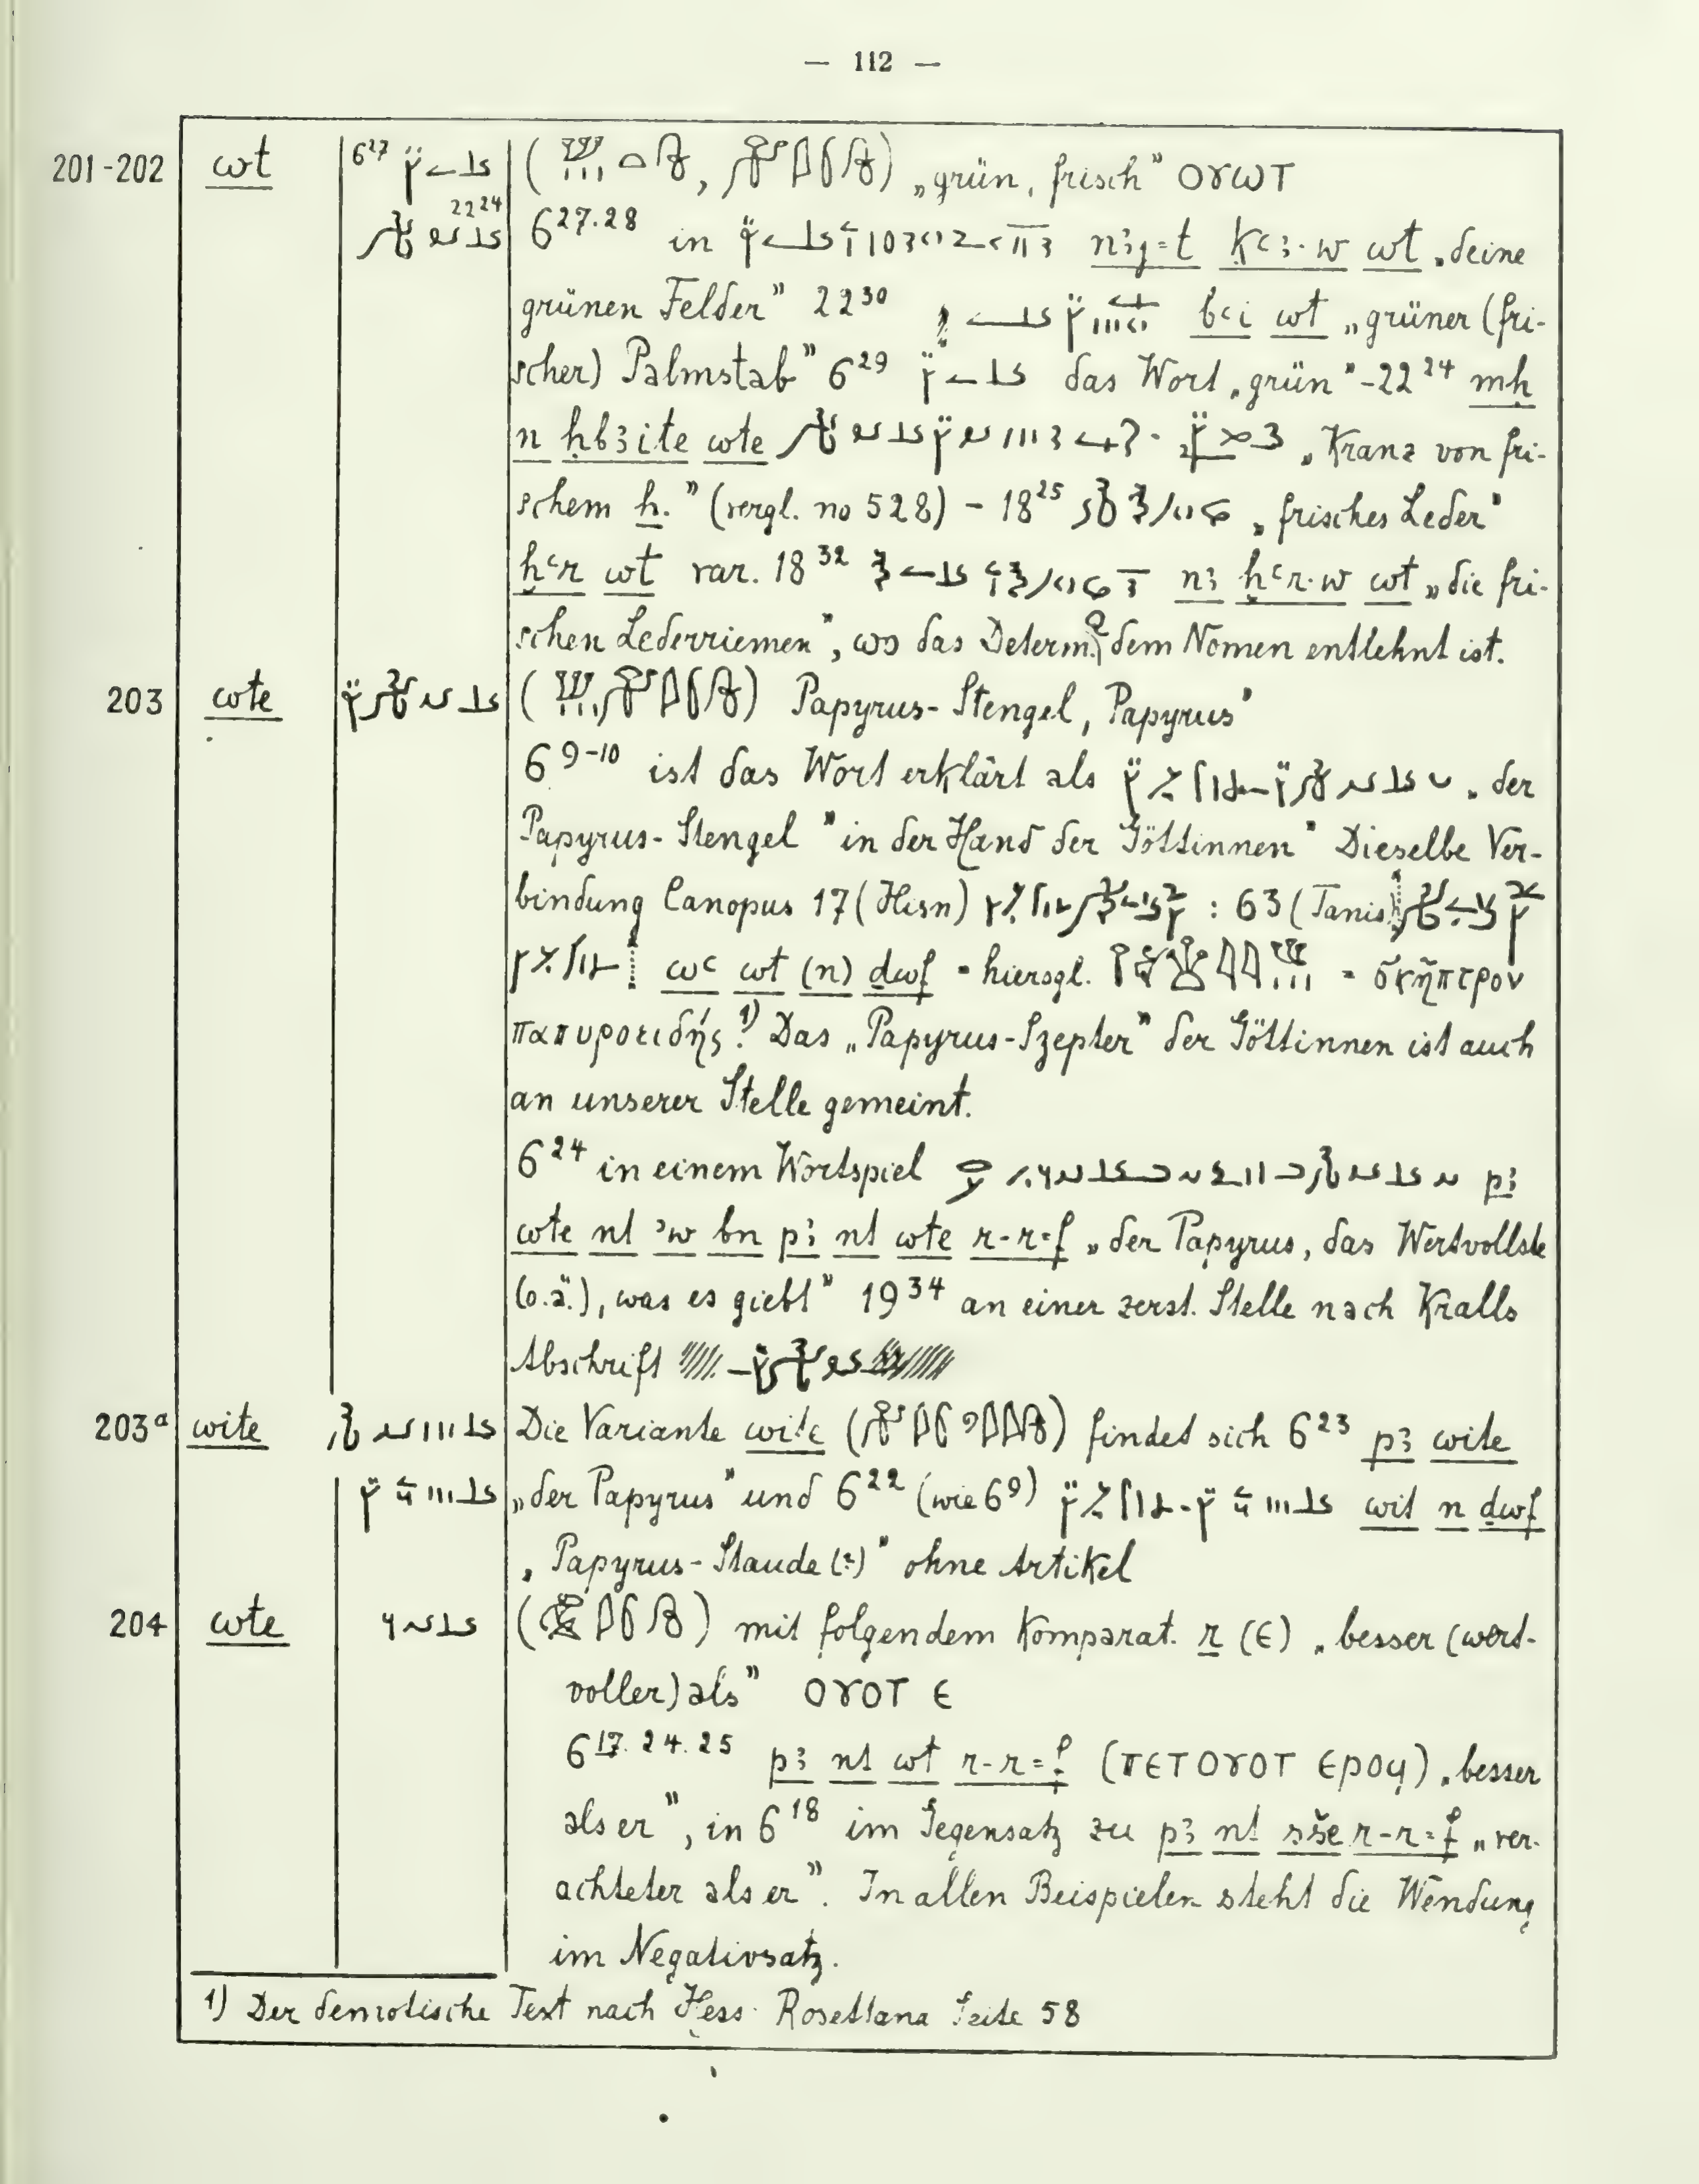 — 112 —
201-202 wt 6²⁷ ( , ) „grün, frisch” ⲟⲩⲱⲧ
22²⁴ 6²⁷·²⁸ in nꜣj=t ḳꜥꜣ·w wt „deine
grünen Felder” 22³⁰ bꜥi wt „grüner (fri-
scher) Palmstab” 6²⁹ das Wort „grün” - 22²⁴ mḥ
n ḥbꜣite wte „Kranz von fri-
schem ḥ.” (vergl. no 528) - 18²⁵ „frisches Leder”
ẖꜥr wt var. 18³² nꜣ ẖꜥr·w wt „die fri-
schen Lederriemen”, wo das Determ. dem Nomen entlehnt ist.
203 wte ( ) Papyrus-Stengel, Papyrus”
6⁹⁻¹⁰ ist das Wort erklärt als „der
Papyrus-Stengel” in der Hand der Göttinnen” Dieselbe Ver-
bindung Canopus 17 (Hisn) : 63 (Tanis)
wꜥ wt (n) ḏwf = hierogl. = σκῆπτρον
παπυροειδής.¹) Das „Papyrus-Szepter” der Göttinnen ist auch
an unserer Stelle gemeint.
6²⁴ in einem Wortspiel pꜣ
wte nt ꜣw bn pꜣ nt wte r-r=f „der Papyrus, das Wertvollste
(o.ä.), was es giebt” 19³⁴ an einer zerst. Stelle nach Kralls
Abschrift
203ᵃ wite Die Variante wite ( ) findet sich 6²³ pꜣ wite
„der Papyrus” und 6²² (wie 6⁹) wit n ḏwf
„Papyrus-Staude (?)” ohne Artikel
204 wte ( ) mit folgendem Komparat. r (ⲉ) „besser (wert-
voller) als” ⲟⲩⲟⲧ ⲉ
6¹⁷·²⁴·²⁵ pꜣ nt wt r-r=f (ⲡⲉⲧⲟⲩⲟⲧ ⲉⲣⲟϥ) „besser
als er”, in 6¹⁸ im Gegensatz zu pꜣ nt sše r-r=f „ver-
achteter als er”. In allen Beispielen steht die Wendung
im Negativsatz.
1) Der demotische Text nach Hess Rosettana Seite 58